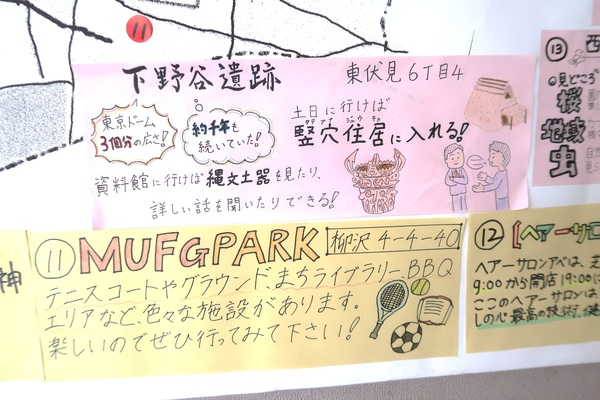 11
下野谷遺跡 東伏見6丁目4
東京ドーム
3個分の広さ!
約千年も
続いていた!
土日に行けば
竪穴住居に入れる!
資料館に行けば縄文土器を見たり、
詳しい話を聞いたりできる!
⑬ 西
の見どころ
桜
地域
虫
神
⑪ MUFGPARK 柳沢 4-4-40
テニスコートやグラウンド、まちライブラリー、BBQ
エリアなど、色々な施設があります。
楽しいのでぜひ行ってみて下さい!
⑫ [ヘアーサロ
ヘアーサロンアベは、芝
9:00から開店19:00に
ここのヘアーサロンは、
しの心 最高の技術、健